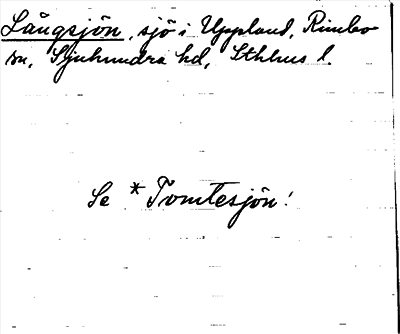 Långsjön, sjö i Uppland, Rimbo
sn, Sjuhundra hd, Sthlms l.
Se *Tomtesjön!